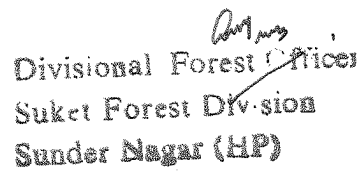 Divisional Forest Officer
Suket Forest Division
Sunder Nagar (HP)